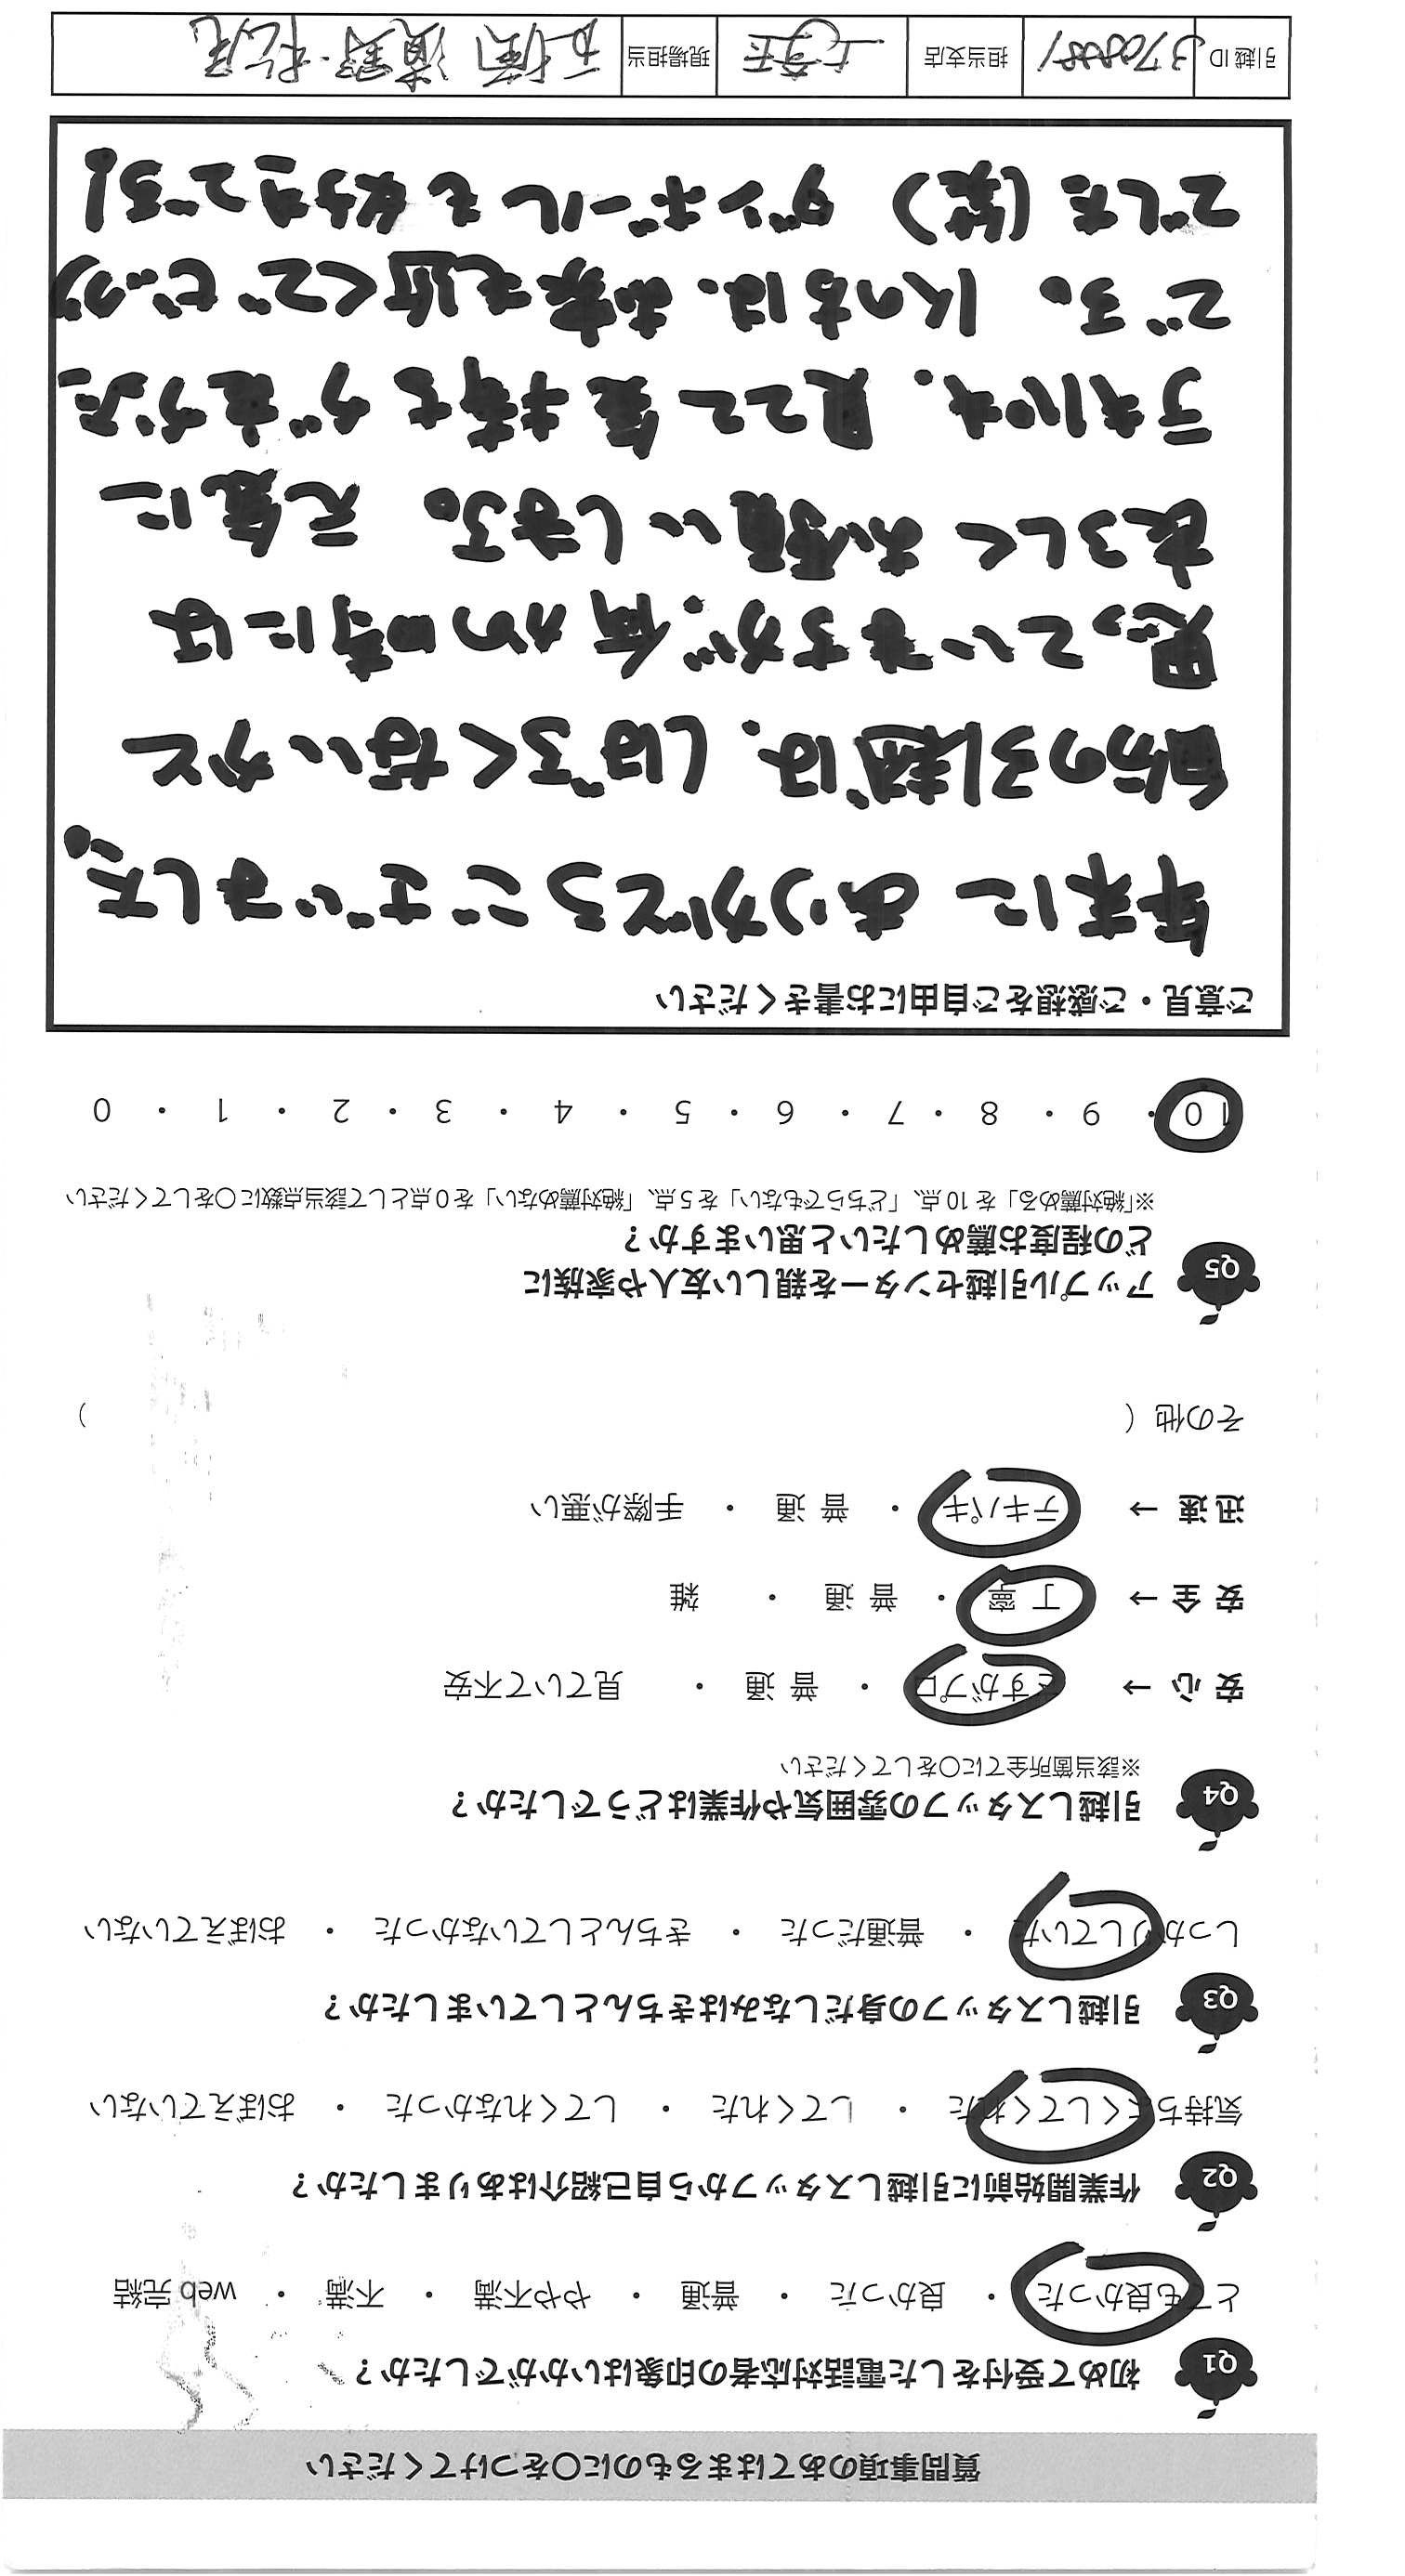 質問事項のあてはまるものに〇をつけてください
Q1 初めて受付をした電話対応者の印象はいかがでしたか？
とても良かった ・ 良かった ・ 普通 ・ やや不満 ・ 不満 ・ web 完結
Q2 作業開始前に引越しスタッフから自己紹介はありましたか？
気持ちよくしてくれた ・ してくれた ・ してくれなかった ・ おぼえていない
Q3 引越しスタッフの身だしなみはきちんとしていましたか？
しっかりしていた ・ 普通だった ・ きちんとしていなかった ・ おぼえていない
Q4 引越しスタッフの雰囲気や作業はどうでしたか？
※該当箇所全てに〇をしてください
安 心 → さすがプロ ・ 普 通 ・ 見ていて不安
安 全 → 丁 寧 ・ 普 通 ・ 雑
迅 速 → テキパキ ・ 普 通 ・ 手際が悪い
その他（ ）
Q5 アップル引越センターを親しい友人や家族に
どの程度お薦めしたいと思いますか？
※「絶対薦める」を 10 点、「どちらでもない」を 5 点、「絶対薦めない」を 0 点として該当点数に〇をしてください
10 ・ 9 ・ 8 ・ 7 ・ 6 ・ 5 ・ 4 ・ 3 ・ 2 ・ 1 ・ 0
ご意見・ご感想をご自由にお書きください
年末に ありがとうございました。
自分の引越は、しばらくないかと
思っていますが、何かの時には
よろしくお願いします。 元気に
テキパキ、見てて気持ちが良かった
です。 Kの方は、お家も近くてビックリ
でした（笑） ダンボールも好チョです！
引越 ID 担当支店 埼玉 現場担当 石橋 濱野・松尾